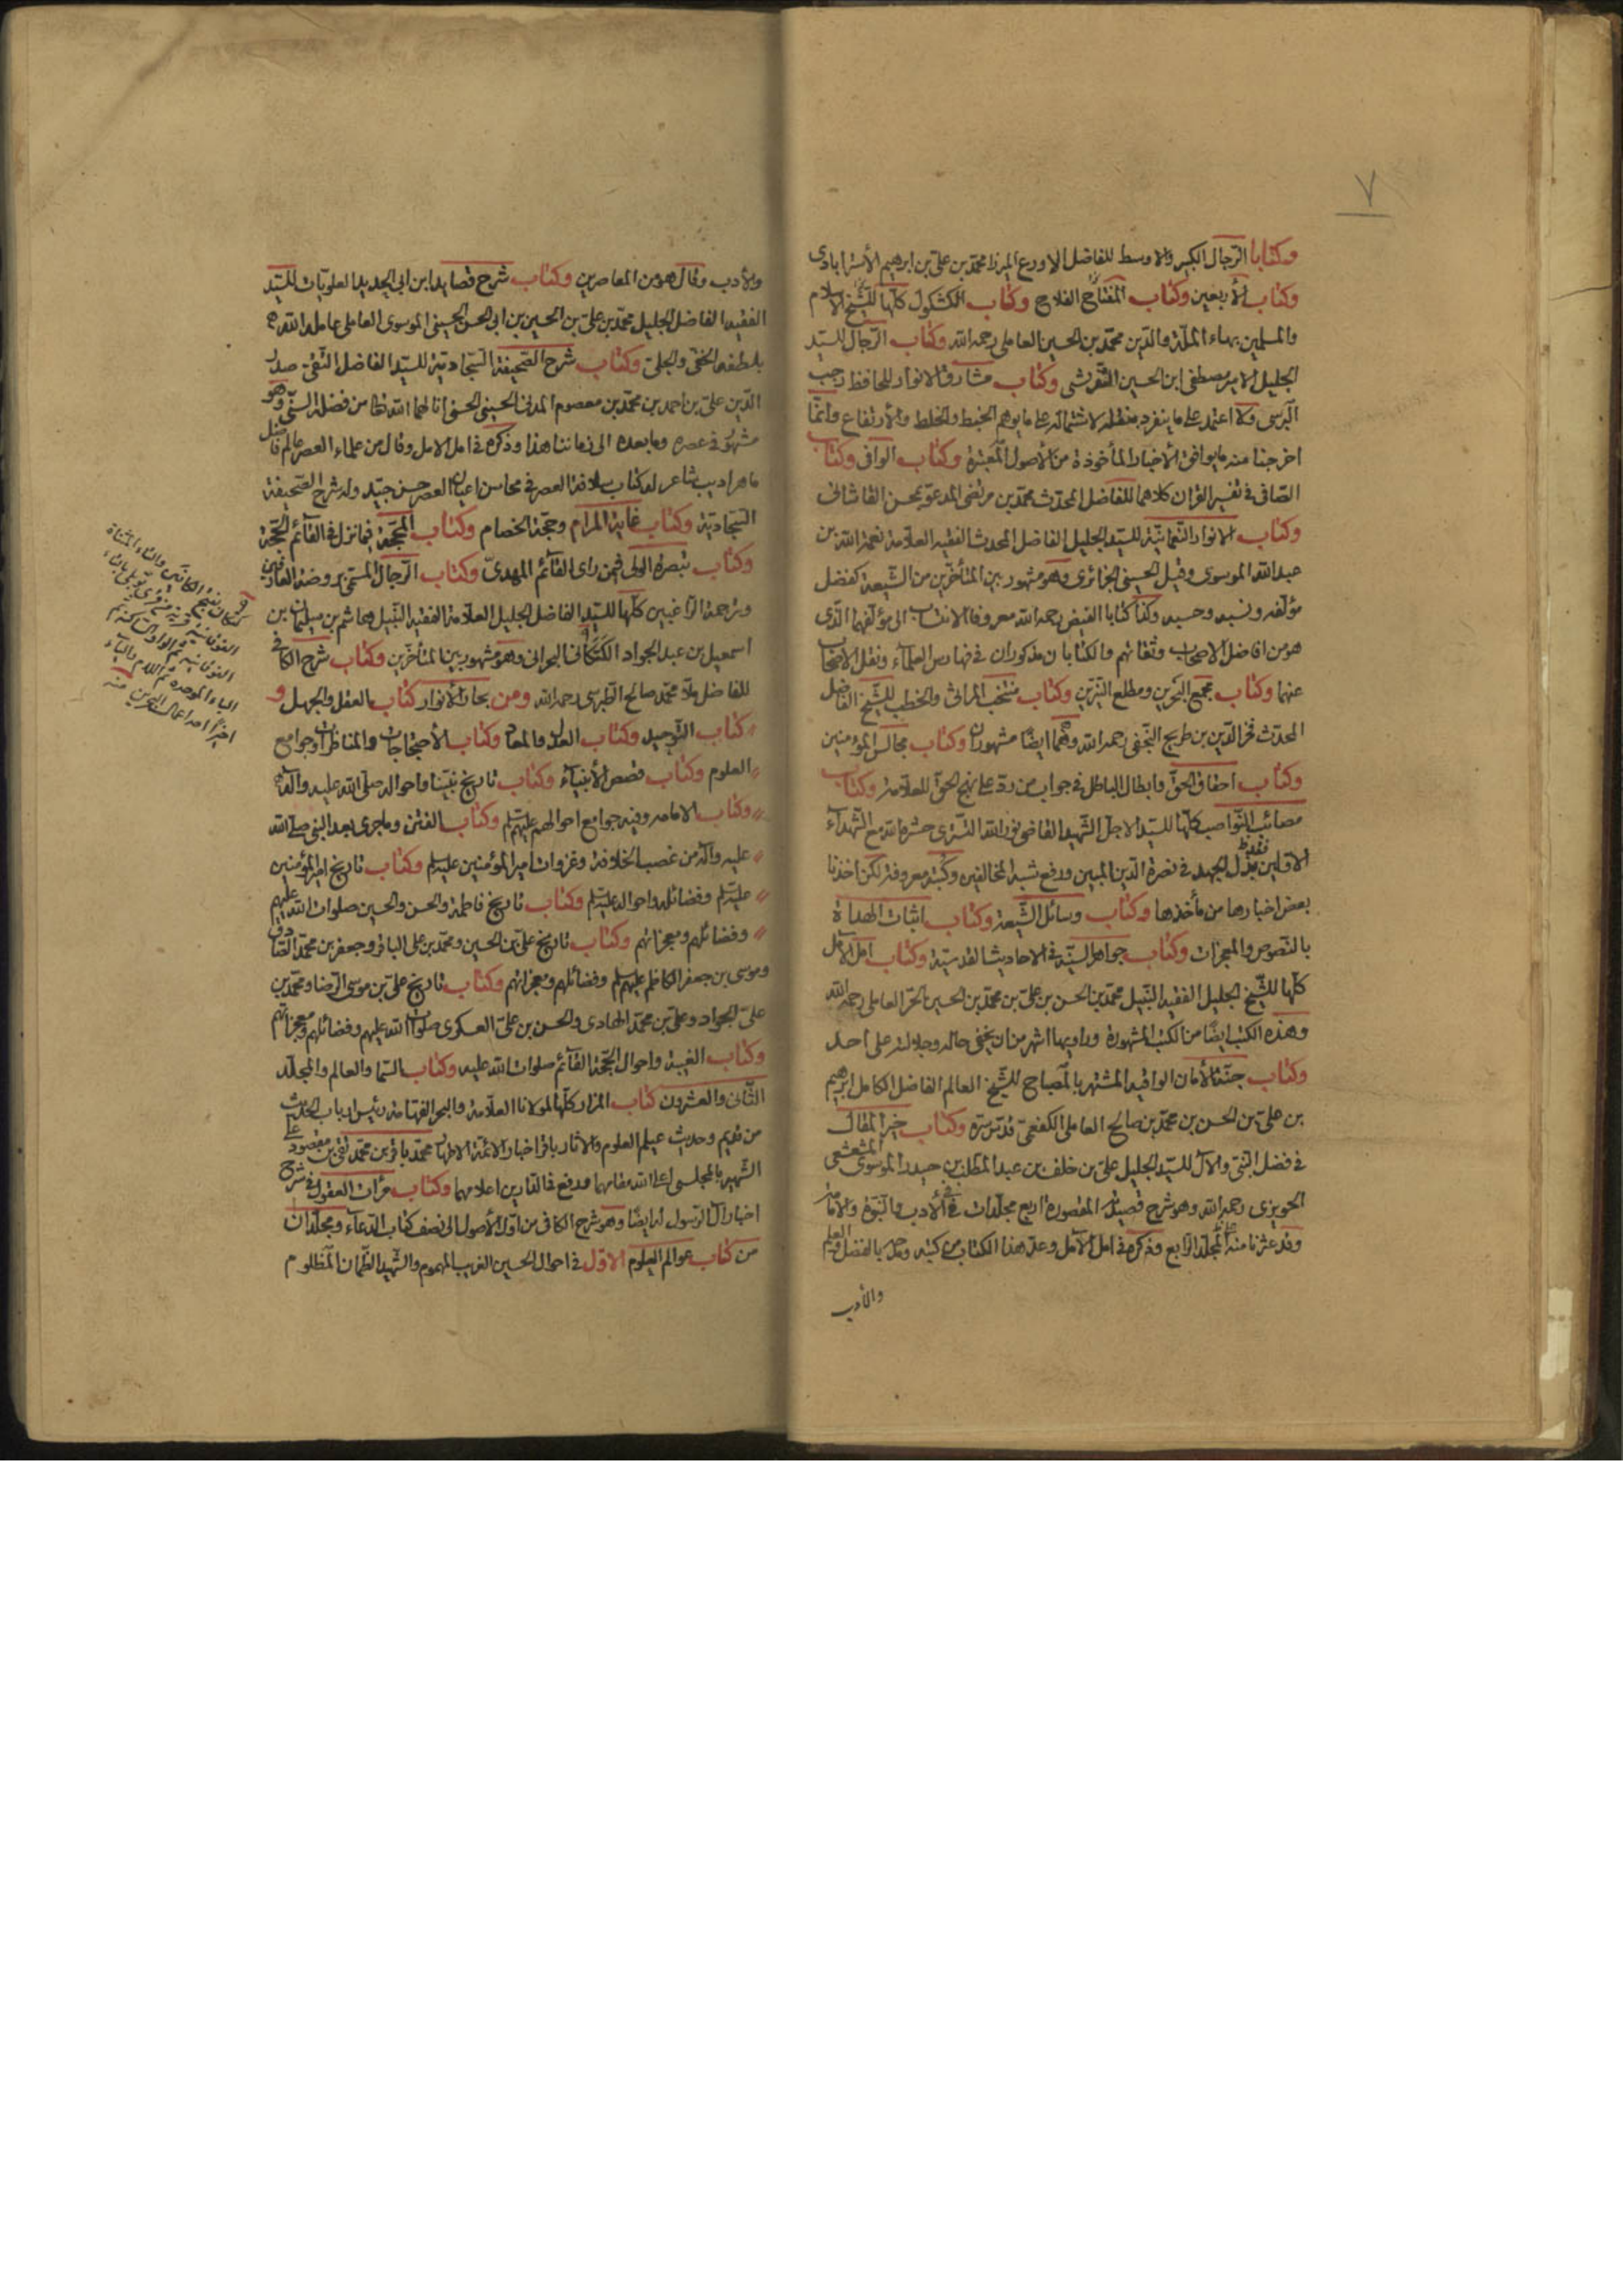 ٧
وكتابا الرّجال الكبير والاوسط للفاضل الاورع الميرزا محمّد بن علىّ بن ابرهيم الأسترابادى
وكتاب الأربعين وكتاب المفتاح الفلاح وكتاب الكشكول كلّها للشّيخ الاسلام
والمسلمين بهاء الملّة والدّين محمّد بن الحسين العاملى رحمه الله وكتاب الرّجال للسيّد
الجليل الامير مصطفى ابن الحسين التّفرشى وكتاب مشارق الانوار للحافظ رجب
البرسى ولا اعتمد على ما ينفرد بنقله لاشتماله على ما يوهم الخبط والخلط والأرتفاع وانّما
اخرجنا منه ما يوافق الأخبار المأخوذة من الأصول المعتبرة وكتاب الوافى وكتاب
الصّافى فى تفسير القران كلاهما للفاضل المحدّث محمّد بن مرتضى المدعوّ بمحسن القاشانى
وكتاب الانوار النّعمانيّة للسيّد الجليل الفاضل المحدث الفقيه العلّامة نعمة الله بن
عبد الله الموسوى وقيل الحسينى الجزائرى وهو مشهور بين المتأخّرين من الشّيعة كفضل
مؤلّفه ونسبه وحسبه وكذا كتابا الفيض رحمه الله معروفا الانتساب الى مؤلّفهما الّذى
هو من افاضل الاصحاب وثقاتهم والكتابان مذكوران فى فهارس العلمآء ونقل الاصحاب
عنهما وكتاب مجمع البحرين ومطلع النيّرين وكتاب منتخب المراثى والخطب للشّيخ الفاضل
المحدّث فخر الدّين بن طريح النّجفى رحمه الله وهما ايضًا مشهوران وكتاب مجالس المؤمنين
وكتاب احقاق الحقّ وابطال الباطل فى جواب من ردّ على نهج الحقّ للعلّامة وكتاب
مصائب النّواصب كلّها للسيّد الاجلّ الشّهيد القاضى نور الله التسترى حشره الله مع الشّهدآء
الاوّلين فقد بذل الجهد فى نصرة الدّين المبين ودفع شبه المخالفين وكتبه معروفة لكن اخذنا
بعض اخبارها من مأخذها وكتاب وسائل الشّيعة وكتاب اثبات الهداة
بالنّصوص والمعجزات وكتاب جواهر السنيّة فى الاحاديث القدسيّة وكتاب امل الآمل
كلّها للشّيخ الجليل الفقيه النّبيل محمّد بن الحسن بن علىّ بن محمّد بن الحسين الحرّ العاملى رحمه الله
وهذه الكتب ايضًا من الكتب المشهورة وراويها اشهر من ان يخفى حاله وجلالته على احد
وكتاب جنّة الأمان الواقية المشتهر بالمصباح للشّيخ العالم الفاضل الكامل ابرهيم
بن علىّ بن الحسن بن محمّد بن صالح العاملى الكفعمىّ قدّس سرّه وكتاب خير المقال
فى فضل النّبى والآل للسيّد الجليل علىّ بن خلف بن عبد المطّلب بن حيدر الموسوى المشعشعى
الحويزى رحمه الله وهو شرح قصيدته المقصورة اربع مجلّدات فى الأدب والنّبوّة والامامة
وقد عثرنا منه على المجلّد الرّابع وذكره فى امل الآمل وعدّ هذا الكتاب من كتبه ومدحه بالفضل والعلم
والأدب
والأدب وقال هو من المعاصرين وكتاب شرح قصايد ابن ابى الحديد العلويّات للسيّد
الفقيه الفاضل الجليل محمّد بن علىّ بن الحسين بن ابى الحسن الحسينى الموسوى العاملى عامله الله
بلطفه الخفىّ والجلىّ وكتاب شرح الصّحيفة السّجاديّة للسيّد الفاضل التّقىّ صدر
الدّين علىّ بن احمد بن محمّد بن معصوم المدنى الحسينى الحسنى انالهما الله تعالى من فضله السّنىّ وهو
مشهور فى عصره وما بعده الى زماننا هذا وذكره فى امل الامل وقال من علماء العصر عالم فاضل
ماهر اديب شاعر له كتاب سلافة العصر فى محاسن اعيان العصر حسن جيّد وله شرح الصّحيفة
السّجاديّة وكتاب غاية المرام وحجّة الخصام وكتاب المحجّة فيما نزل فى القآئم الحجّة
وكتاب تبصرة الولى فيمن راى القآئم المهدىّ وكتاب الرّجال المسمّى بروضة العارفين
ونزهة الرّاغبين كلّها للسيّد الفاضل الجليل العلّامة الفقيه النّبيل هاشم بن سليمان بن
اسمعيل بن عبد الجواد الكتكانى البحرانى وهو مشهور بين المتأخّرين وكتاب شرح الكافى
للفاضل ملّا محمّد صالح الطّبرسى رحمه الله ومن بحار الأنوار كتاب العقل والجهل و
كتاب التّوحيد وكتاب العدل والمعاد وكتاب الأحتجاجات والمناظرات وجوامع
العلوم وكتاب قصص الأنبيآء وكتاب تاريخ نبيّنا واحواله صلّى الله عليه وآله
وكتاب الامامة وفيه جوامع احوالهم عليهم السّلم وكتاب الفتن وما جرى بعد النّبى صلى الله
عليه وآله من غصب الخلافة وغزوات امير المؤمنين عليه السلم وكتاب تاريخ امير المؤمنين
عليه السّلم وفضائله واحواله عليه السّلم وكتاب تاريخ فاطمة والحسن والحسين صلوات الله عليهم
وفضائلهم ومعجزاتهم وكتاب تاريخ علىّ بن الحسين ومحمّد بن على الباقر وجعفر بن محمّد الصّادق
وموسى بن جعفر الكاظم عليهم السلم وفضائلهم ومعجزاتهم وكتاب تاريخ علىّ بن موسى الرّضا ومحمّد بن
علىّ الجواد وعلىّ بن محمّد الهادى والحسن بن علىّ العسكرى صلوات الله عليهم وفضائلهم ومعجزاتهم
وكتاب الغيبة واحوال الحجّة القآئم صلوات الله عليه وكتاب السّما والعالم والمجلّد
الثّانى والعشرون كتاب المزار كلّها لمولانا العلّامة والبحر الفهّامة رئيس ارباب الحديث
من قديم وحديث عيلم العلوم والاثار باقر اخبار الائمّة الاطهار محمّد باقر بن محمّد تقى بن مقصود على
الشّهير بالمجلسى اعلا الله مقامهما ورفع فى الدّارين اعلامهما وكتاب مرأت العقول فى شرح
اخبار آل الرّسول له ايضًا وهو شرح الكافى من اوّل الأصول الى نصف كتاب الدّعآء ومجلّدان
من كتاب عوالم العلوم الاوّل فى احوال الحسين الغريب المهموم والشّهيد الظّمآن المظلوم
كتكان بفتح الكافين والتاء المثنّاة
الفوقانيّة قرية من قرى توبلى بالتاء
الفوقانيّة ثم الواو الساكنة ثم
الباء الموحّده ثم اللام والياء
اخيرًا احد اعمال البحرين منه